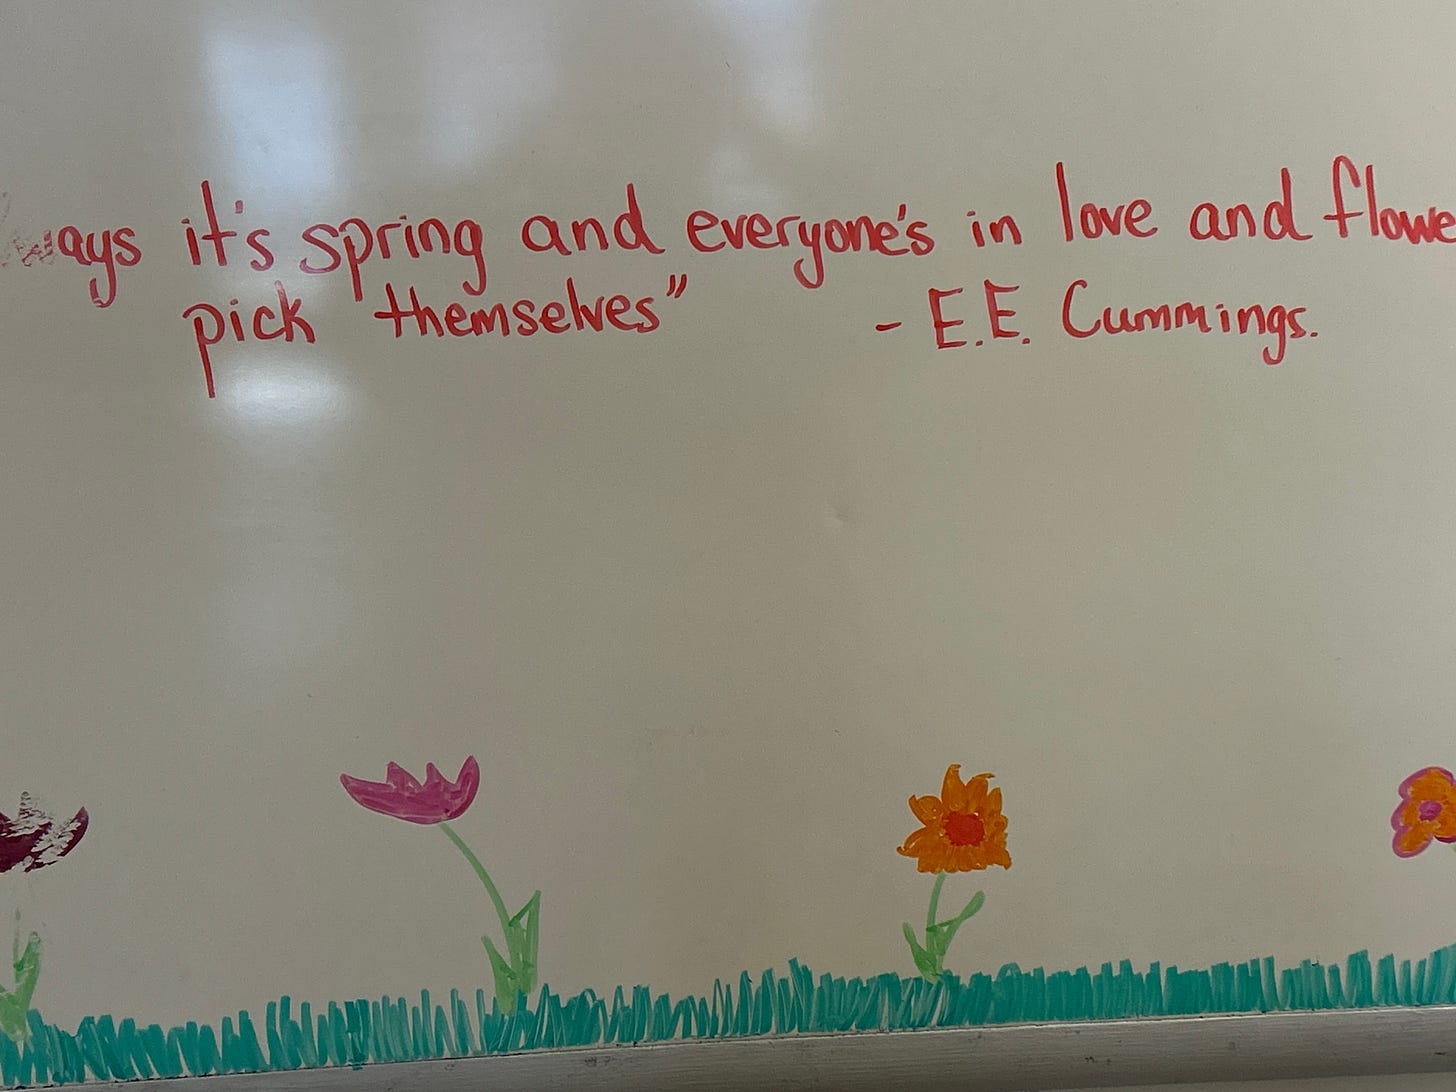 ways it's spring and everyone's in love and flowe
pick themselves" - E.E. Cummings.